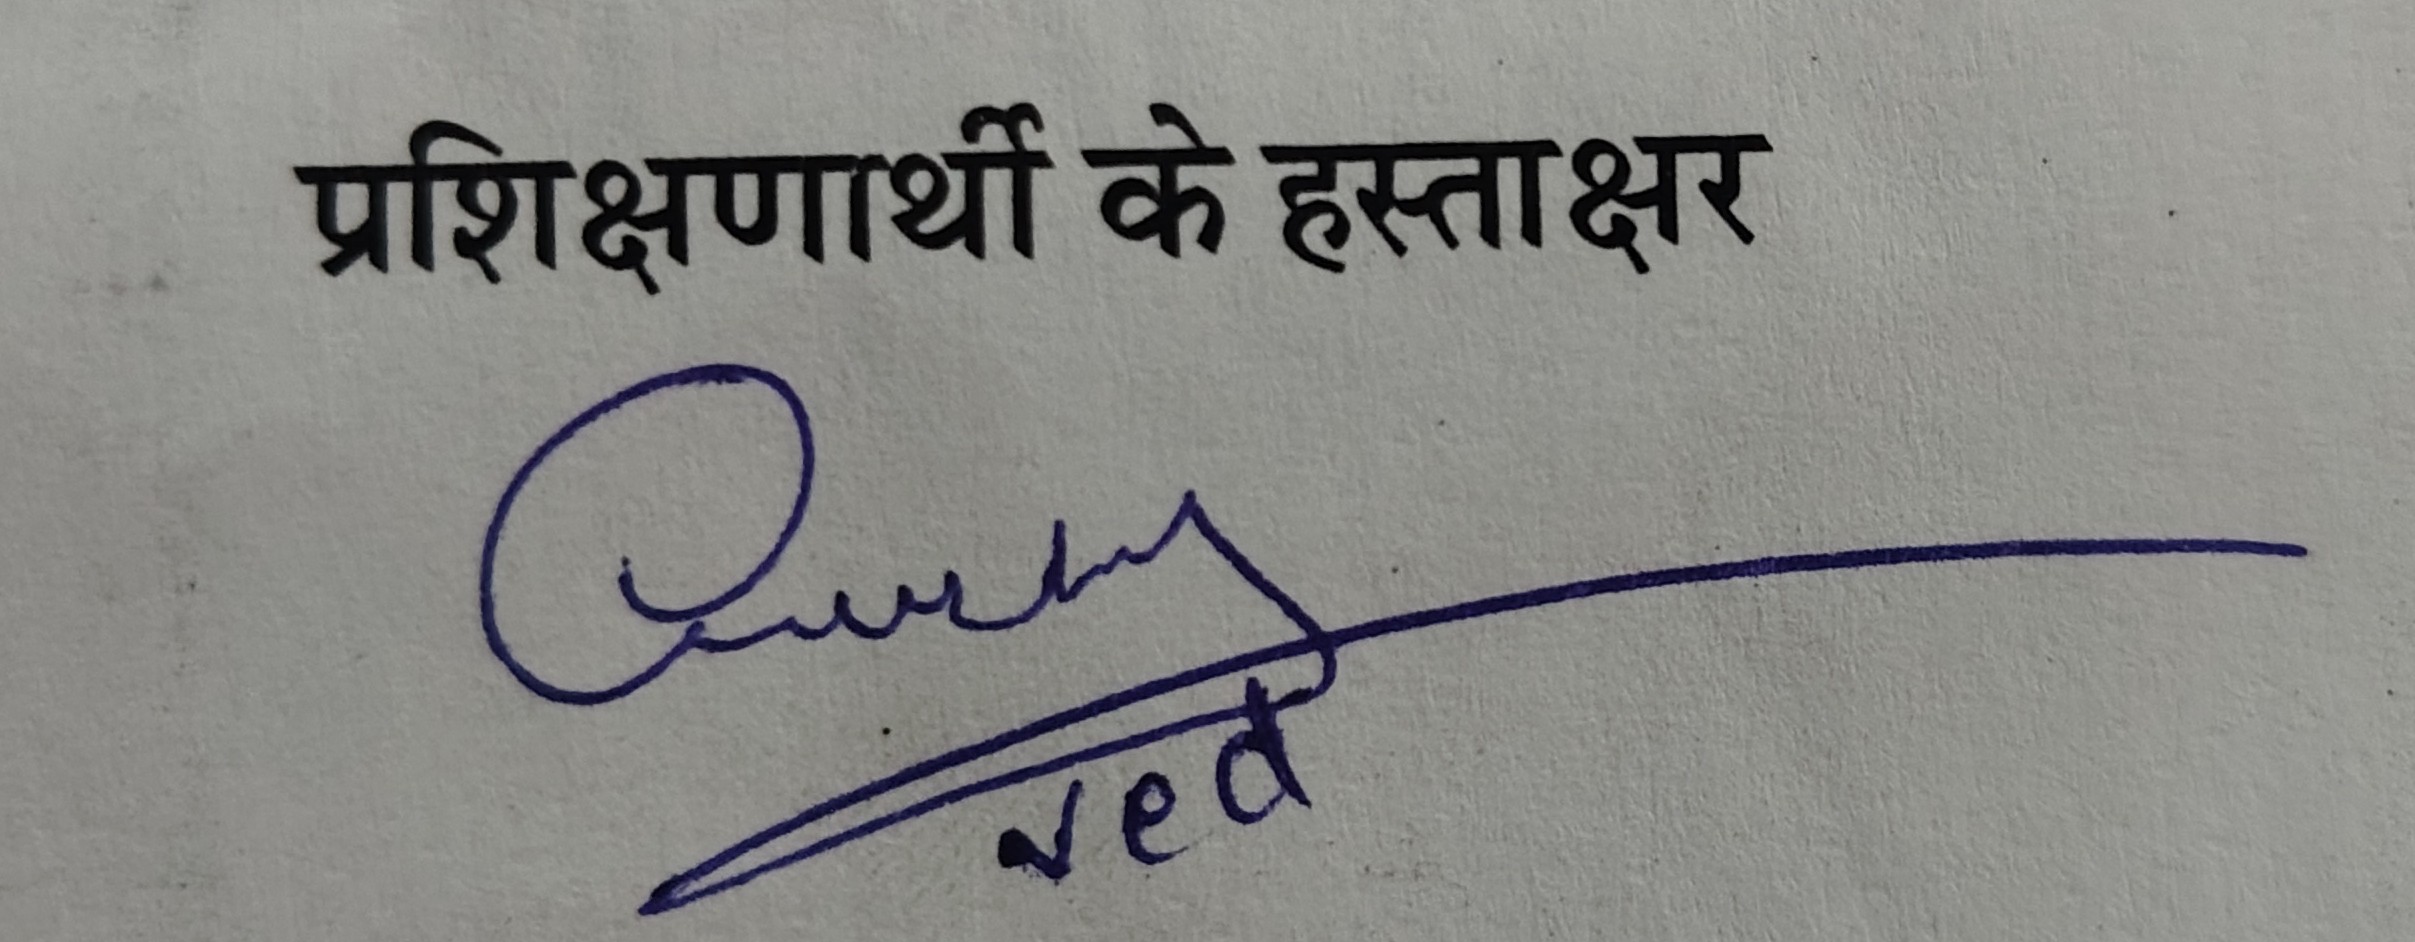 प्रशिक्षणार्थी के हस्ताक्षर
ved